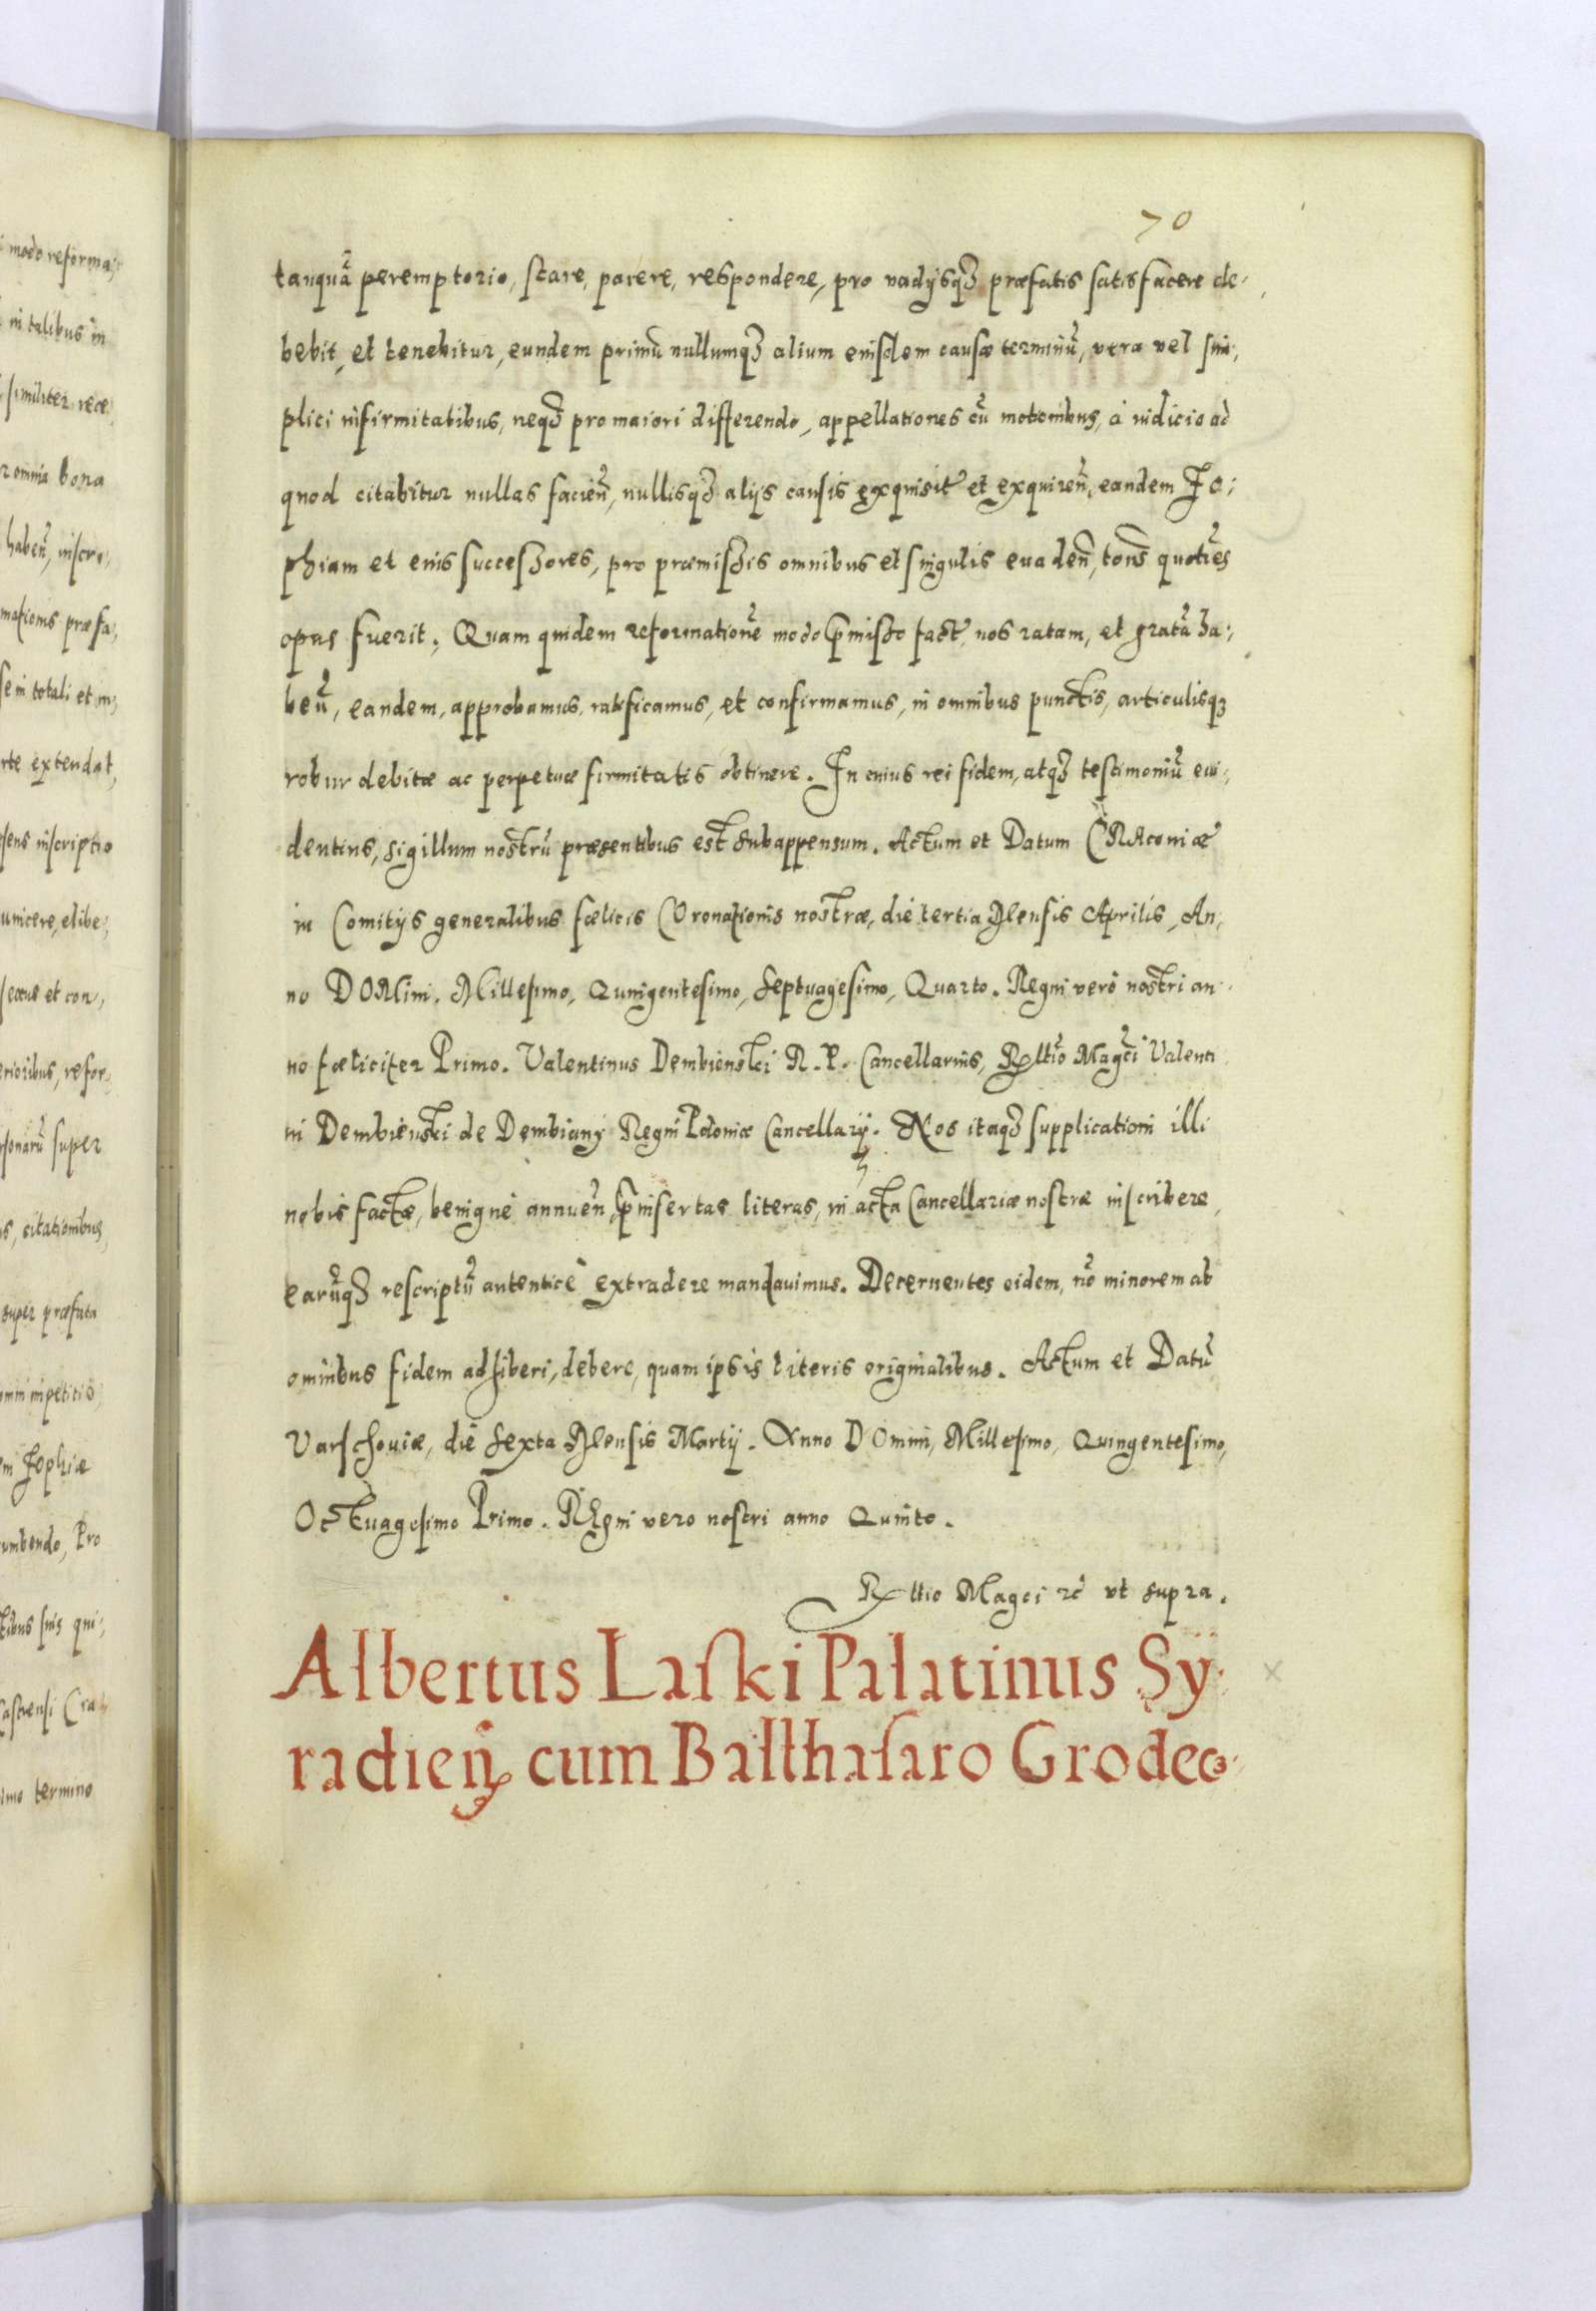 70
tanquã peremptorio, stare, parere, respondere, pro vadijsq3 præfatis satisfacere de-
bebit, et tenebitur, eundem primũ nullumq3 alium eiusdem causæ terminũ, vera vel sim,
plici infirmitatibus, neq3 pro maiori differendo, appellationes cũ motionibus, à iudicio ad
quod citabitur nullas facieñ, nullisq3 alijs causis exquisit et exquireñ, eandem Zo;
phiam et eius successores, pro præmissis omnibus et singulis euadeñ, toties quotiẽs
opus fuerit. Quam quidem reformationẽ modo p̃misso fact, nos ratam, et gratã ha;
beñ, eandem, approbamus, ratificamus, et confirmamus, in omnibus punctis, articulisq3
robur debitæ ac perpetuæ firmitatis obtinere. In cuius rei fidem, atq3 testimoniũ eui;
dentius, sigillum nostrũ præsentibus est subappensum. Actum et Datum CRAcouiæ
in Comitijs generalibus fœlicis COronationis nostræ, die tertia Mensis Aprilis, An,
no DOMini. Millesimo, Quingentesimo, Septuagesimo, Quarto. Regni verò nostri an-
no fœliciter Primo. Valentinus Dembienski R. P. Cancellarius, Rlltio Magci Valenti
ni Dembienski de Dembiany Regni Poloniæ Cancellarij. Nos itaq3 supplicationi illi
nobis factæ, benignè annueñ, p̃insertas literas, in acta Cancellariæ nostræ inscribere,
earũq3 rescriptũ autenticè extradere mandauimus. Decernentes eidem, nõ minorem ab
omnibus fidem adhiberi, debere, quam ipsis literis originalibus. Actum et Datũ
Varschouiæ, die Sexta Mensis Martij. Anno DOmini, Millesimo, Quingentesimo,
Octuagesimo Primo. REgni vero nostri anno Quinto.
Rlltio Magci rc̃ vt supra.
Albertus Laski Palatinus Sy-
radieñ cum Balthasaro Grodec3